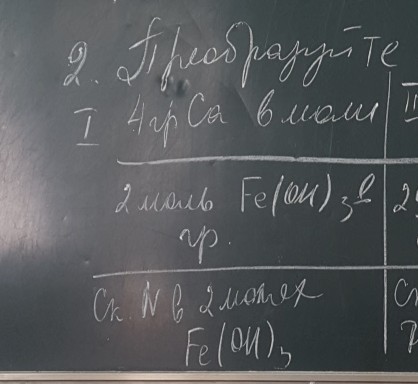 2. Преобразуйте
I 4 гр Ca в моли
II
2 моль Fe(OH)3 в
гр.
2
Ск. N в 2 молях
Fe(OH)3
Ск